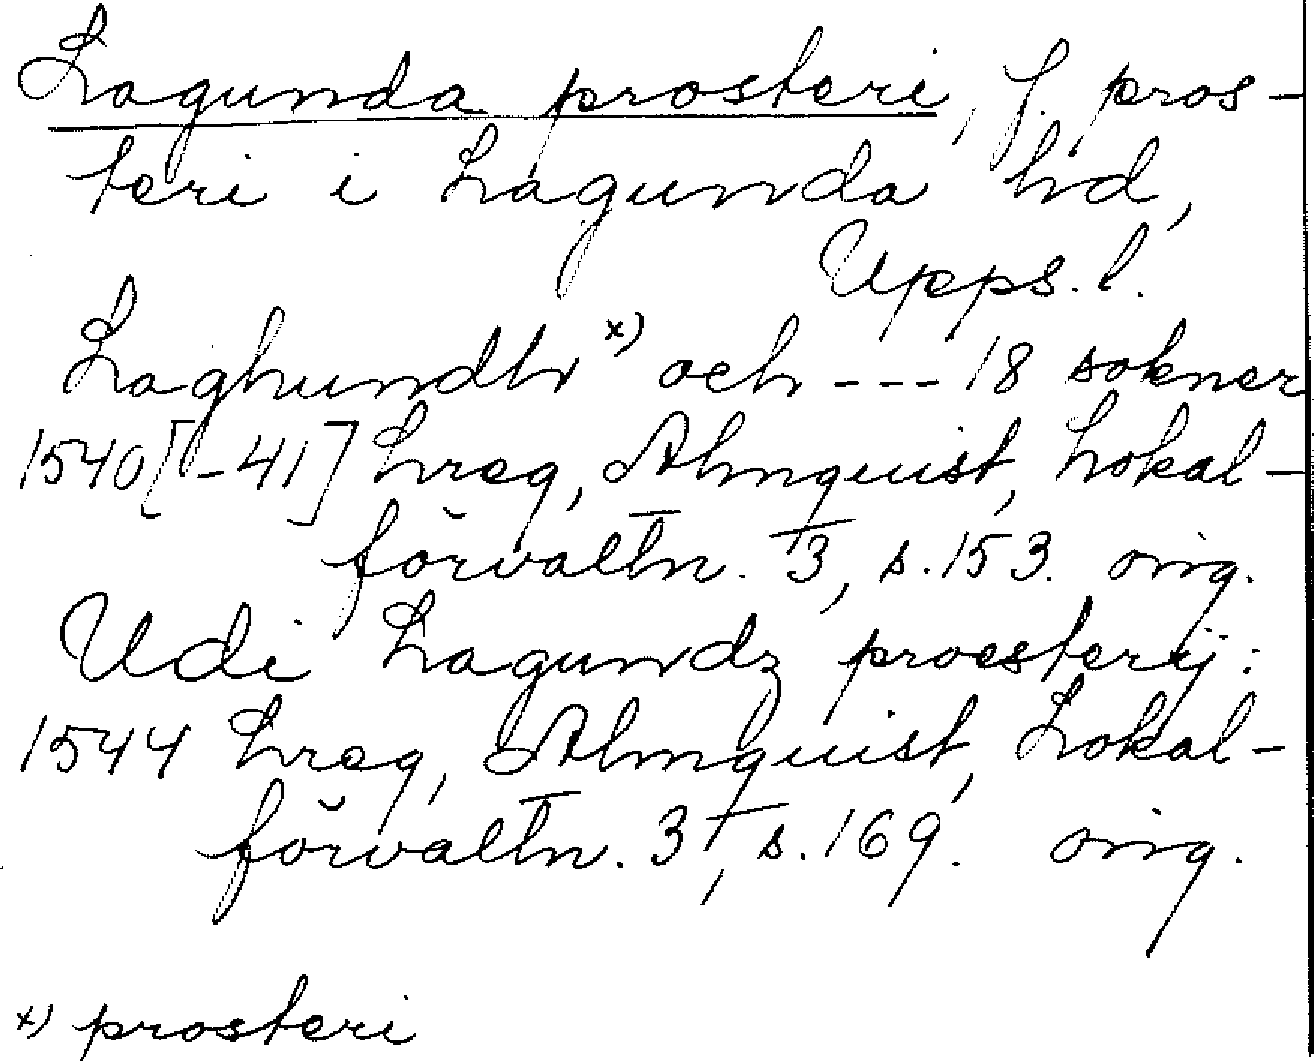 Lagunda prosteri, f. pros-
teri i Lagunda hd,
Upps. l.
Laghundh x) och --- 18 sokner
1540[-41] Lreg, Almquist, Lokal-
förvaltn. 3, s. 153. orig.
Udi Lagundz proesterij:
1544 Lreg, Almquist, Lokal-
förvaltn. 3, s. 169. orig.
x) prosteri